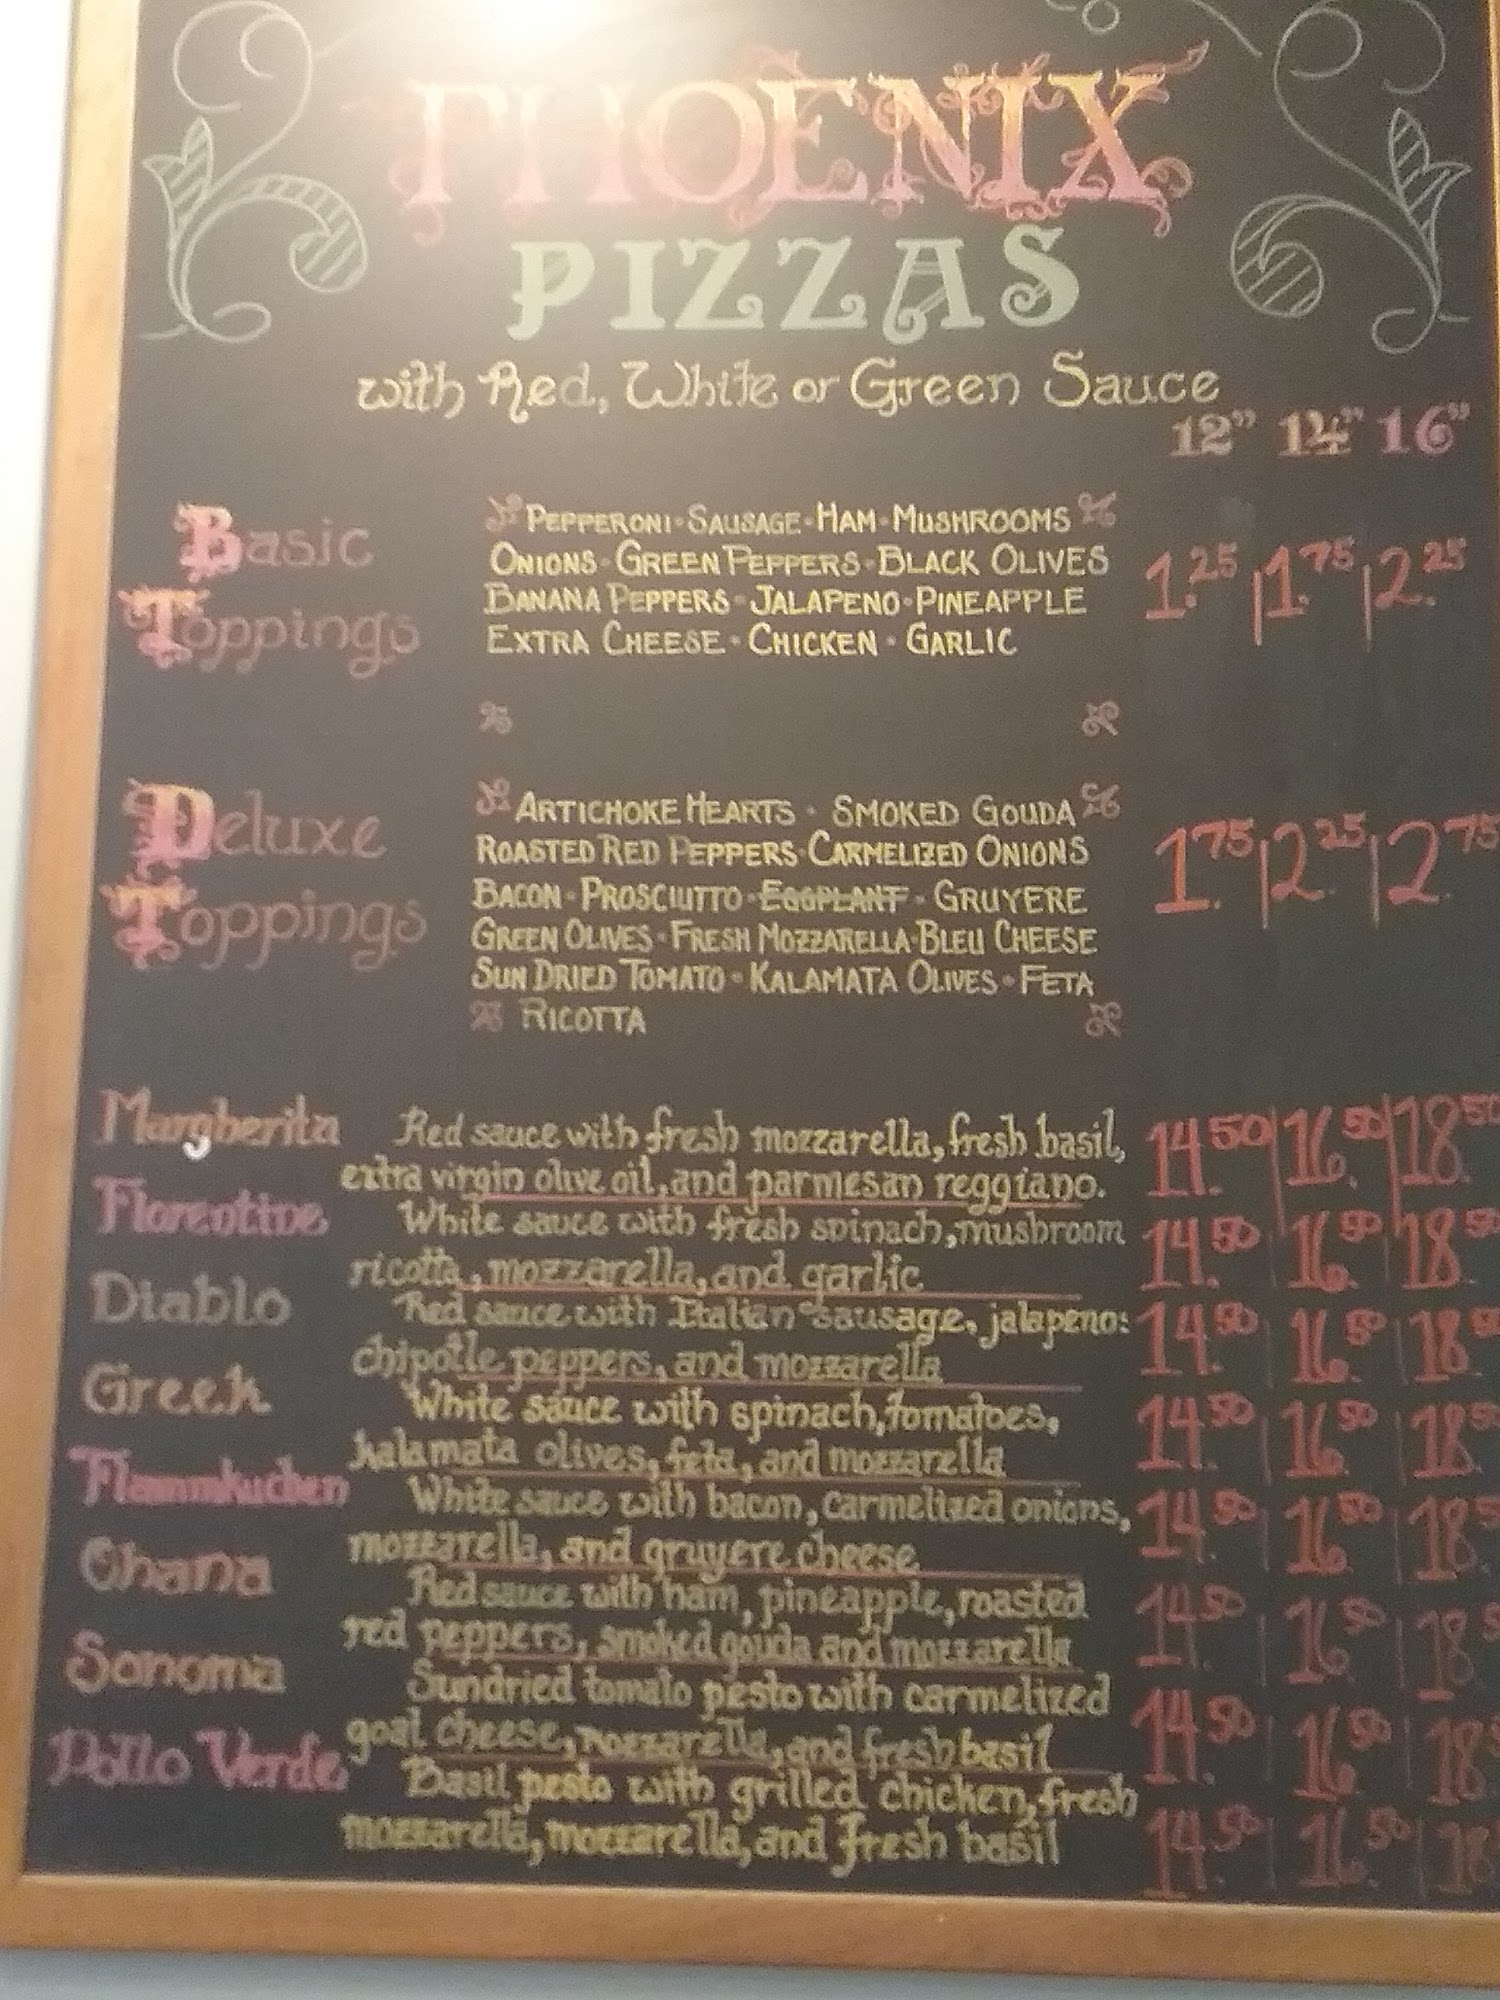 PHOENIX
PIZZAS
with Red, White or Green Sauce
12" 14" 16"
Basic
Toppings
PEPPERONI · SAUSAGE · HAM · MUSHROOMS
ONIONS · GREEN PEPPERS · BLACK OLIVES
BANANA PEPPERS · JALAPENO · PINEAPPLE
EXTRA CHEESE · CHICKEN · GARLIC
1.25 | 1.75 | 2.25
Deluxe
Toppings
ARTICHOKE HEARTS · SMOKED GOUDA
ROASTED RED PEPPERS · CARMELIZED ONIONS
BACON · PROSCIUTTO · EGGPLANT · GRUYERE
GREEN OLIVES · FRESH MOZZARELLA · BLEU CHEESE
SUN DRIED TOMATO · KALAMATA OLIVES · FETA
RICOTTA
1.75 | 2.25 | 2.75
Margherita Red sauce with fresh mozzarella, fresh basil, 14.50 | 16.50 | 18.50
extra virgin olive oil, and parmesan reggiano.
Florentine White sauce with fresh spinach, mushroom 14.50 16.50 18.50
ricotta, mozzarella, and garlic
Diablo Red sauce with Italian sausage, jalapeno: 14.50 16.50 18.50
chipotle peppers, and mozzarella
Greek White sauce with spinach, tomatoes, 14.50 16.50 18.50
kalamata olives, feta, and mozzarella
Flammkuchen White sauce with bacon, carmelized onions, 14.50 16.50 18.5
mozzarella, and gruyere cheese
Ohana Red sauce with ham, pineapple, roasted 14.50 16.50 18.5
red peppers, smoked gouda and mozzarella
Sonoma Sundried tomato pesto with carmelized 14.50 16.50 18
goat cheese, mozzarella, and fresh basil
Pollo Verde Basil pesto with grilled chicken, fresh 14.50 | 16.50 | 18
mozzarella, mozzarella, and fresh basil